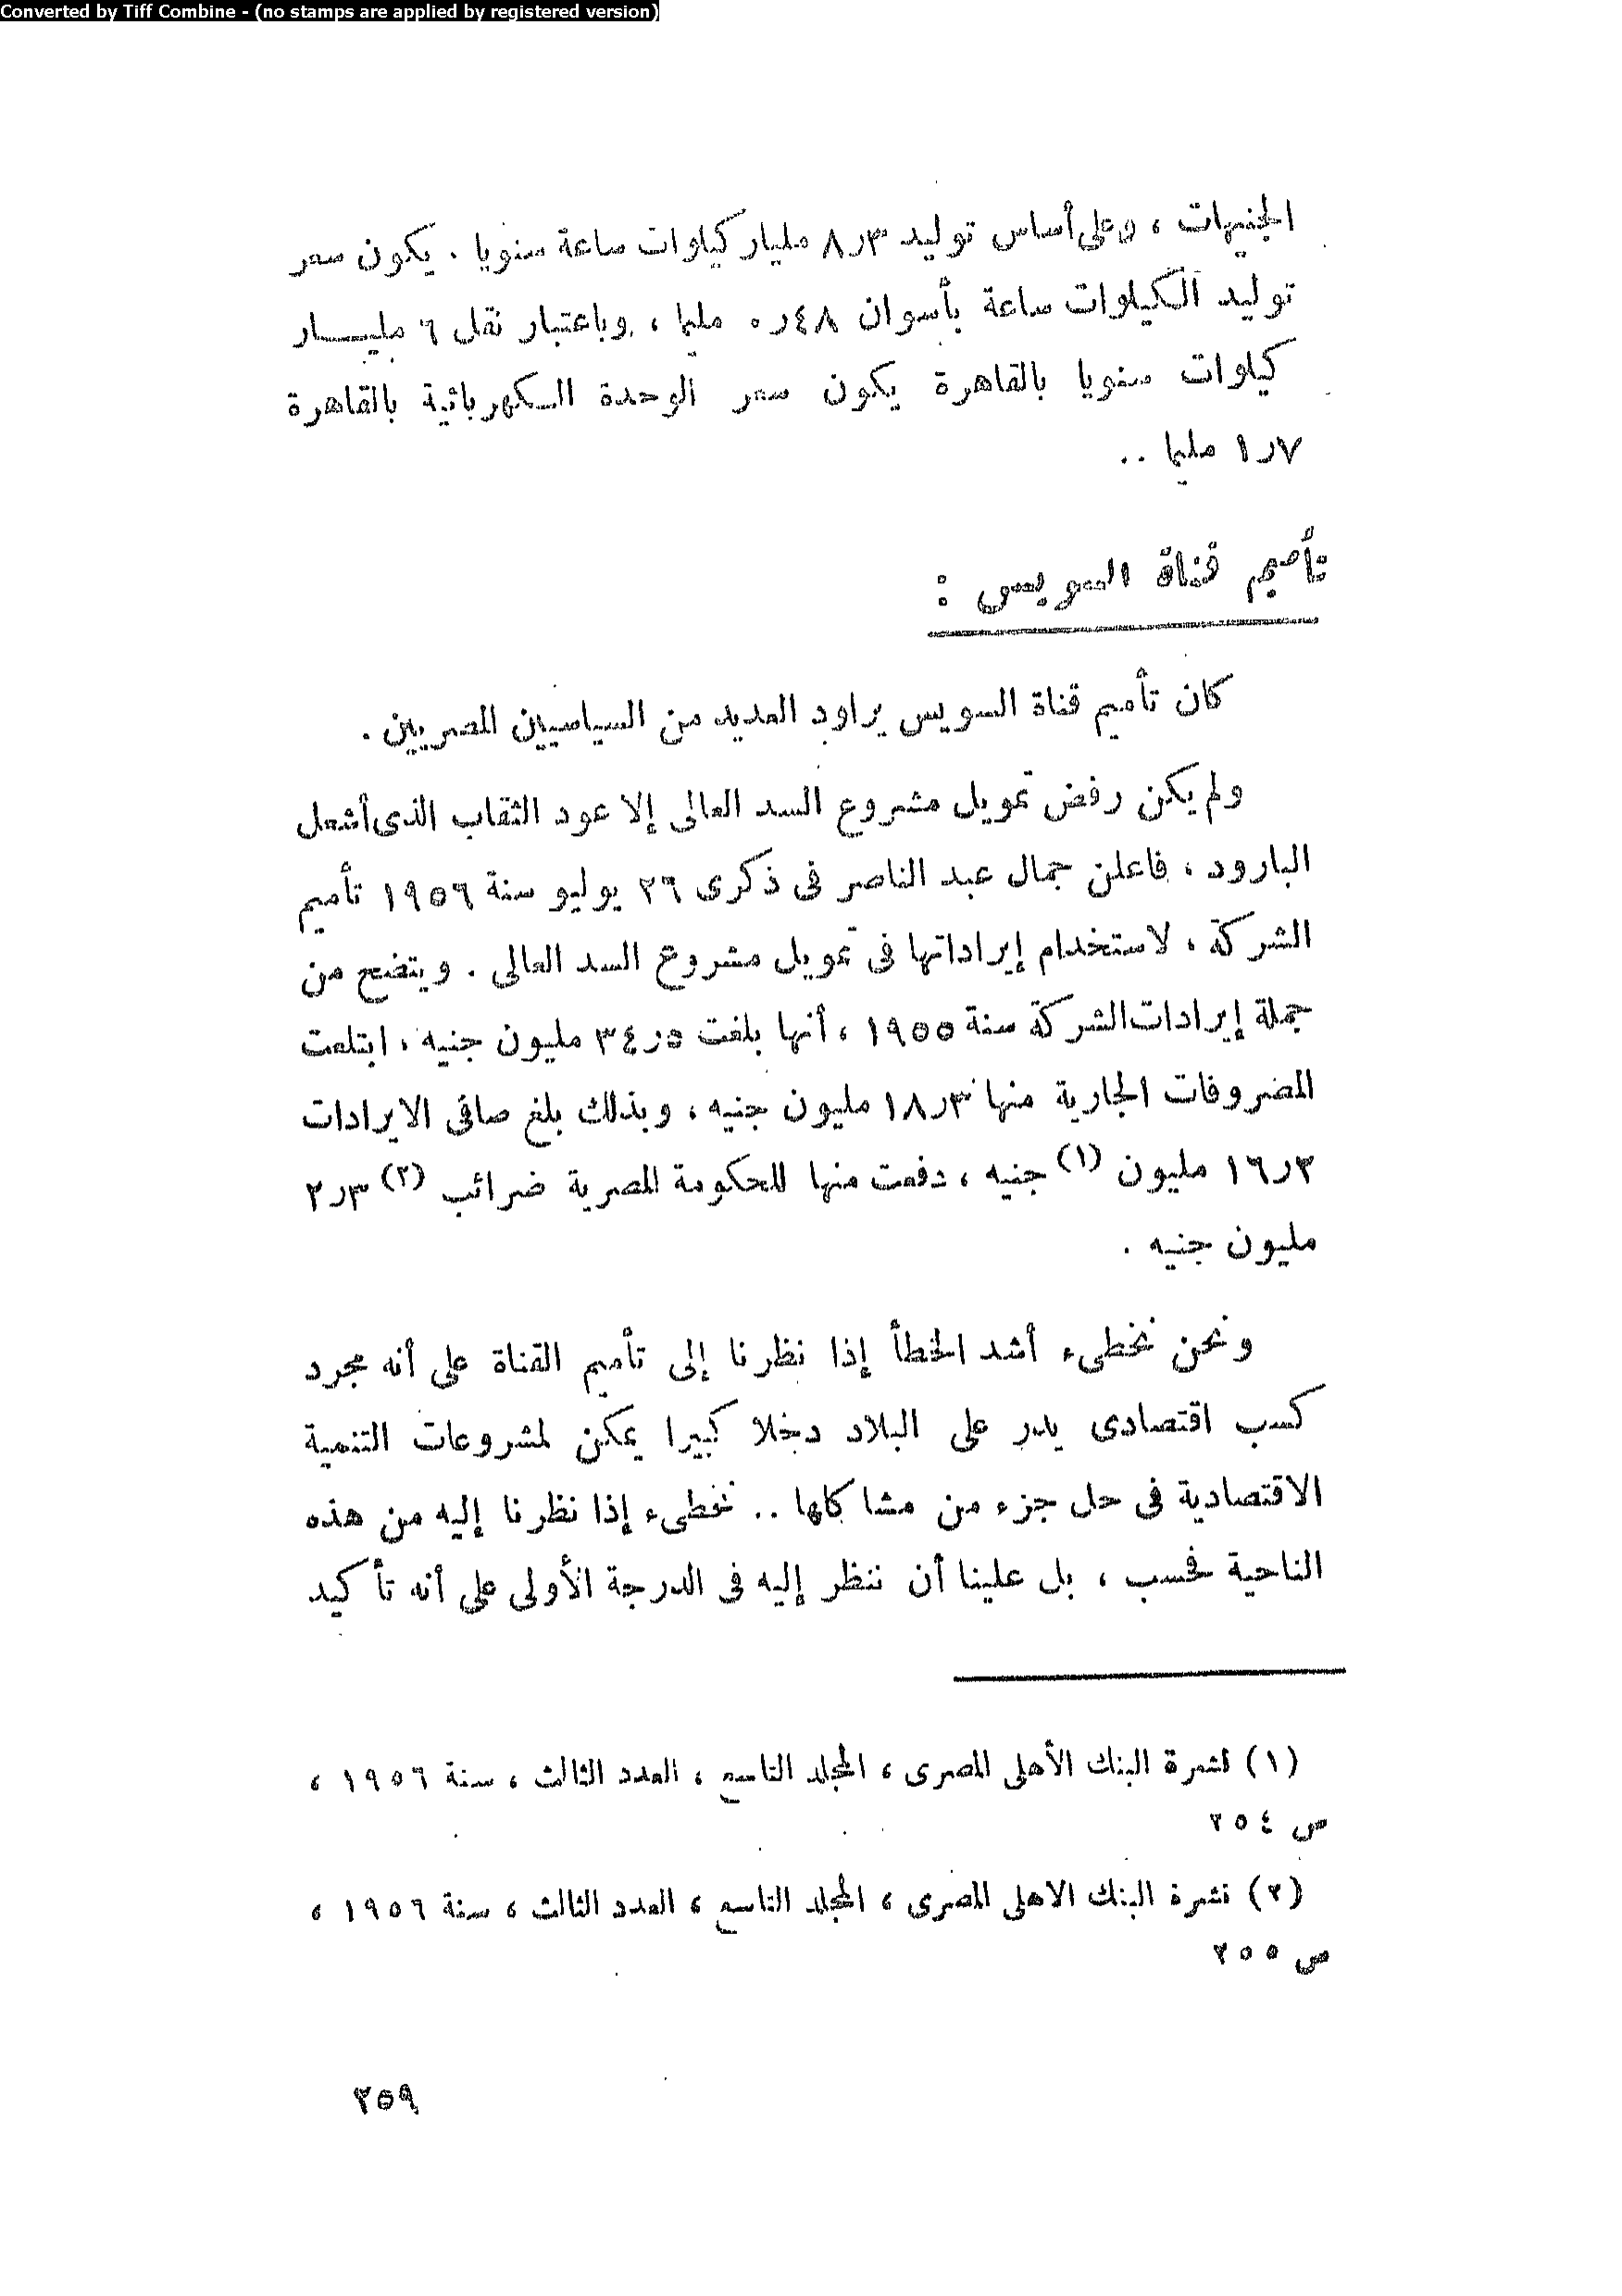 Converted by Tiff Combine - (no stamps are applied by registered version)
الجنيهات ، وعلى أساس توليد ٣ر٨ مليار كيلوات ساعة سنويا . يكون سعر
توليد الكيلوات ساعة بأسوان ٤٨ر٠ مليما ، وباعتبار نقل ٦ مليـــار
كيلوات سنويا بالقاهرة يكون سعر الوحدة الكهربائية بالقاهرة
٧ر١ مليما ..
تأميم قناة السويس :
كان تأميم قناة السويس يراود العديد من السياسيين المصريين .
ولم يكن رفض تمويل مشروع السد العالى إلا عود الثقاب الذى أشعل
البارود ، فاعلن جمال عبد الناصر فى ذكرى ٢٦ يوليو سنة ١٩٥٦ تأميم
الشركة ، لاستخدام إيراداتها فى تمويل مشروع السد العالى . ويتضح من
جملة إيرادات الشركة سنة ١٩٥٥ ، أنها بلغت ٥ر٣٤ مليون جنيه ، ابتلعت
المصروفات الجارية منها ٣ر١٨ مليون جنيه ، وبذلك بلغ صافى الايرادات
٢ر١٦ مليون (١) جنيه ، دفعت منها للحكومة المصرية ضرائب (٢) ٣ر٢
مليون جنيه .
ونحن نخطىء أشد الخطأ إذا نظرنا إلى تأميم القناة على أنه مجرد
كسب اقتصادى يدر على البلاد دخلا كبيرا يمكن لمشروعات التنمية
الاقتصادية فى حل جزء من مشاكلها .. نخطىء إذا نظرنا إليه من هذه
الناحية فحسب ، بل علينا أن ننظر إليه فى الدرجة الأولى على أنه تأكيد
(١) نشرة البنك الأهلى المصرى ، المجلد التاسع ، العدد الثالث ، سنة ١٩٥٦ ،
ص ٢٥٤
(٢) نشرة البنك الاهلى المصرى ، المجلد التاسع ، العدد الثالث ، سنة ١٩٥٦ ،
ص ٢٥٥
٢٥٩